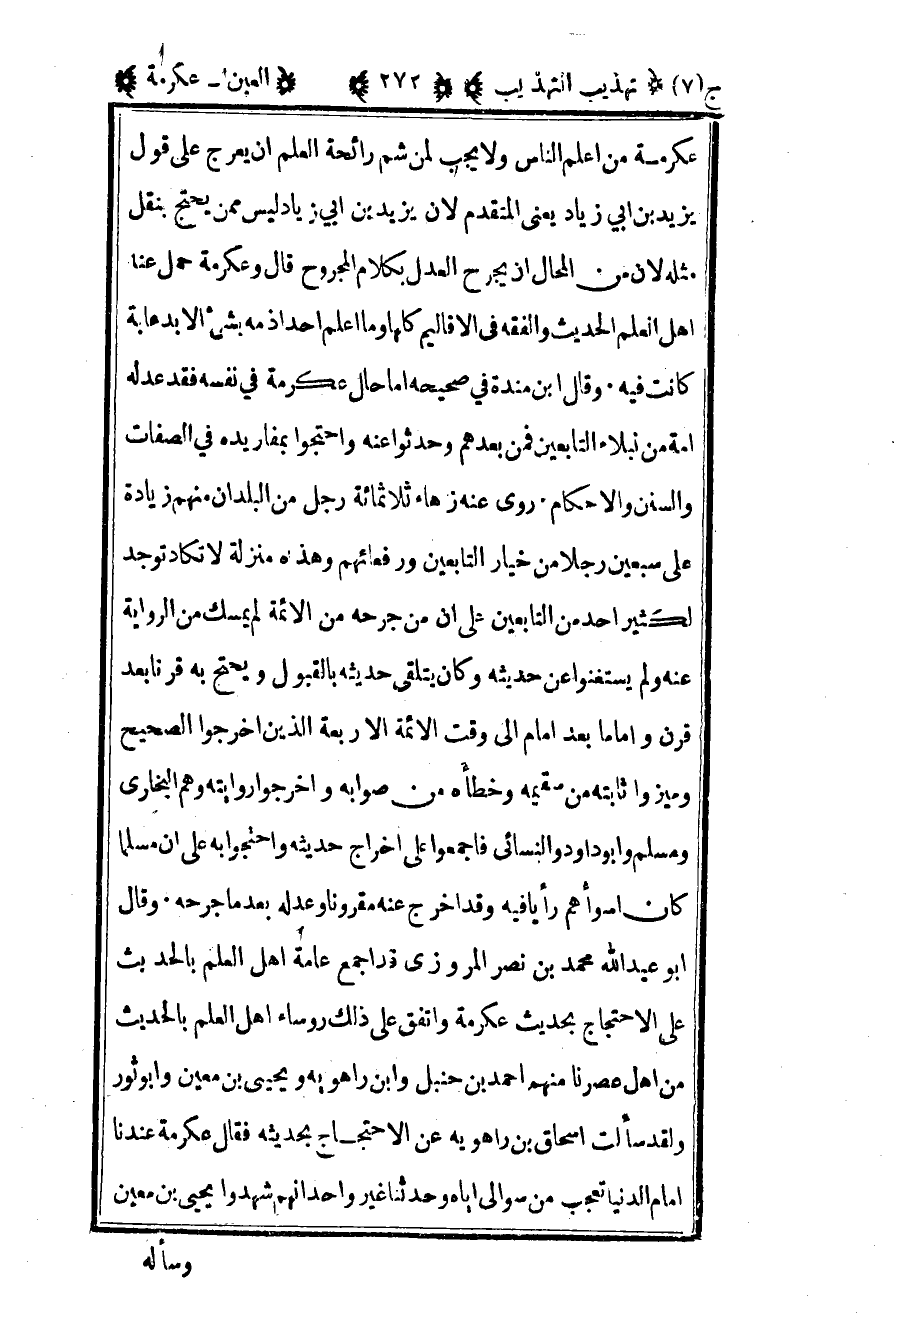 ج(٧) تهذيب التهذيب ٢٧٢ العين - عكرمة
عكرمة من اعلم الناس ولا يجب لمن شم رائحة العلم ان يعرج على قول
يزيد بن ابي زياد يعنى المتقدم لان يزيد بن ابي زياد ليس ممن يحتج بنقل
مثله لان من المحال ان يجرح العدل بكلام المجروح قال وعكرمة حمل عنا
اهل العلم الحديث والفقه فى الاقاليم كلها وما اعلم احدا ذمه بشئ الا بدعابة
كانت فيه ٠ وقال ابن مندة في صحيحه اما حال عكرمة في نفسه فقد عدله
امة من نبلاء التابعين فمن بعدهم وحدثوا عنه واحتجوا بمفاريده في الصفات
والسنن والاحكام ٠ روى عنه زهاء ثلاثمائة رجل من البلدان منهم زيادة
على سبعين رجلا من خيار التابعين ورفعائهم وهذه منزلة لا تكاد توجد
لكثير احد من التابعين على ان من جرحه من الائمة لم يمسك من الرواية
عنه ولم يستغنوا عن حديثه وكان يتلقى حديثه بالقبول ويحتج به قرنا بعد
قرن و اماما بعد امام الى وقت الائمة الاربعة الذين اخرجوا الصحيح
وميزوا ثابته من سقيمه وخطأه من صوابه و اخرجوا روايته وهم البخارى
ومسلم وابو داود والنسائى فاجمعوا على اخراج حديثه واحتجوا به على ان مسلما
كان اسوأهم رأيا فيه وقد اخرج عنه مقرونا وعدله بعد ما جرحه ٠ وقال
ابو عبدالله محمد بن نصر المروزى قد اجمع عامة اهل العلم بالحديث
على الاحتجاج بحديث عكرمة واتفق على ذلك روساء اهل العلم بالحديث
من اهل عصرنا منهم احمد بن حنبل وابن راهويه و يحيى بن معين وابو ثور
ولقد سألت اسحاق بن راهويه عن الاحتجاج بحديثه فقال عكرمة عندنا
امام الدنيا تعجب من سوالى اياه وحدثنا غير واحد انهم شهدوا يحيى بن معين
وسأله